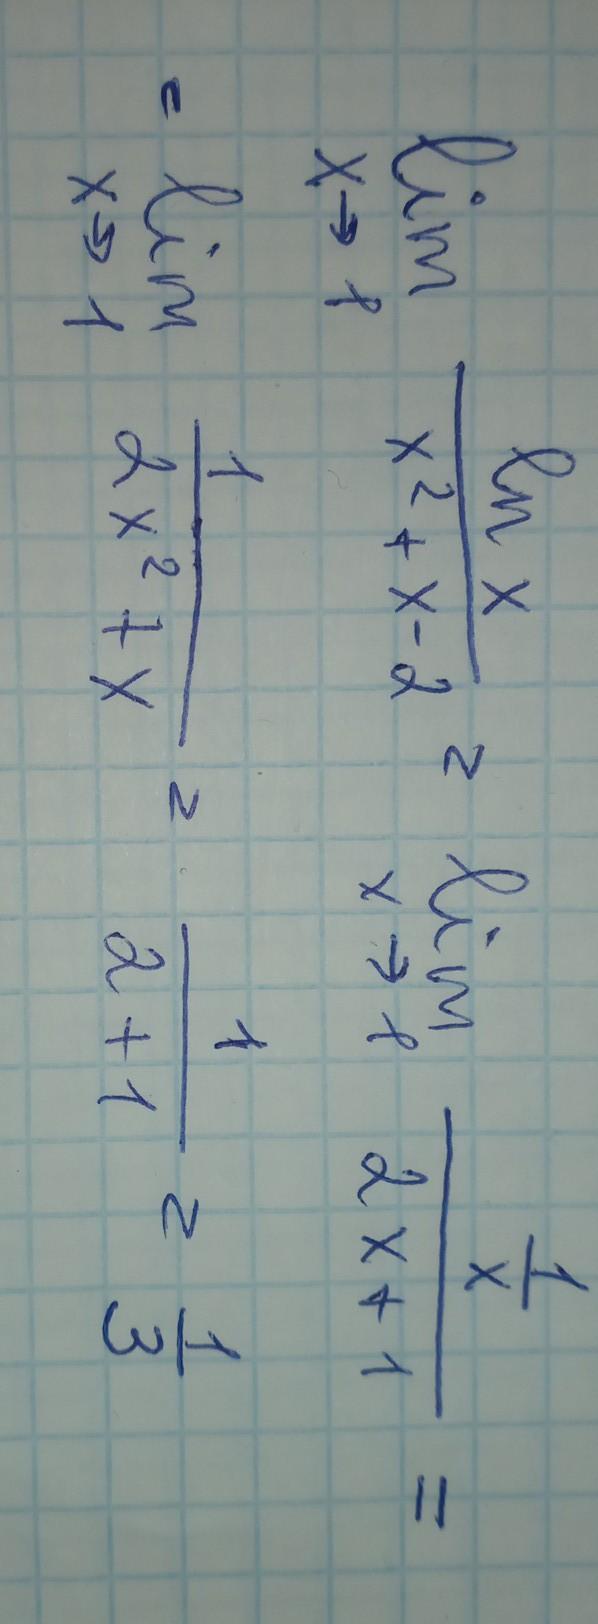 lim x→1 ln x / x² + x - 2 = lim x→1 1/x / 2x + 1 =
= lim x→1 1 / 2x² + x = 1 / 2 + 1 = 1/3